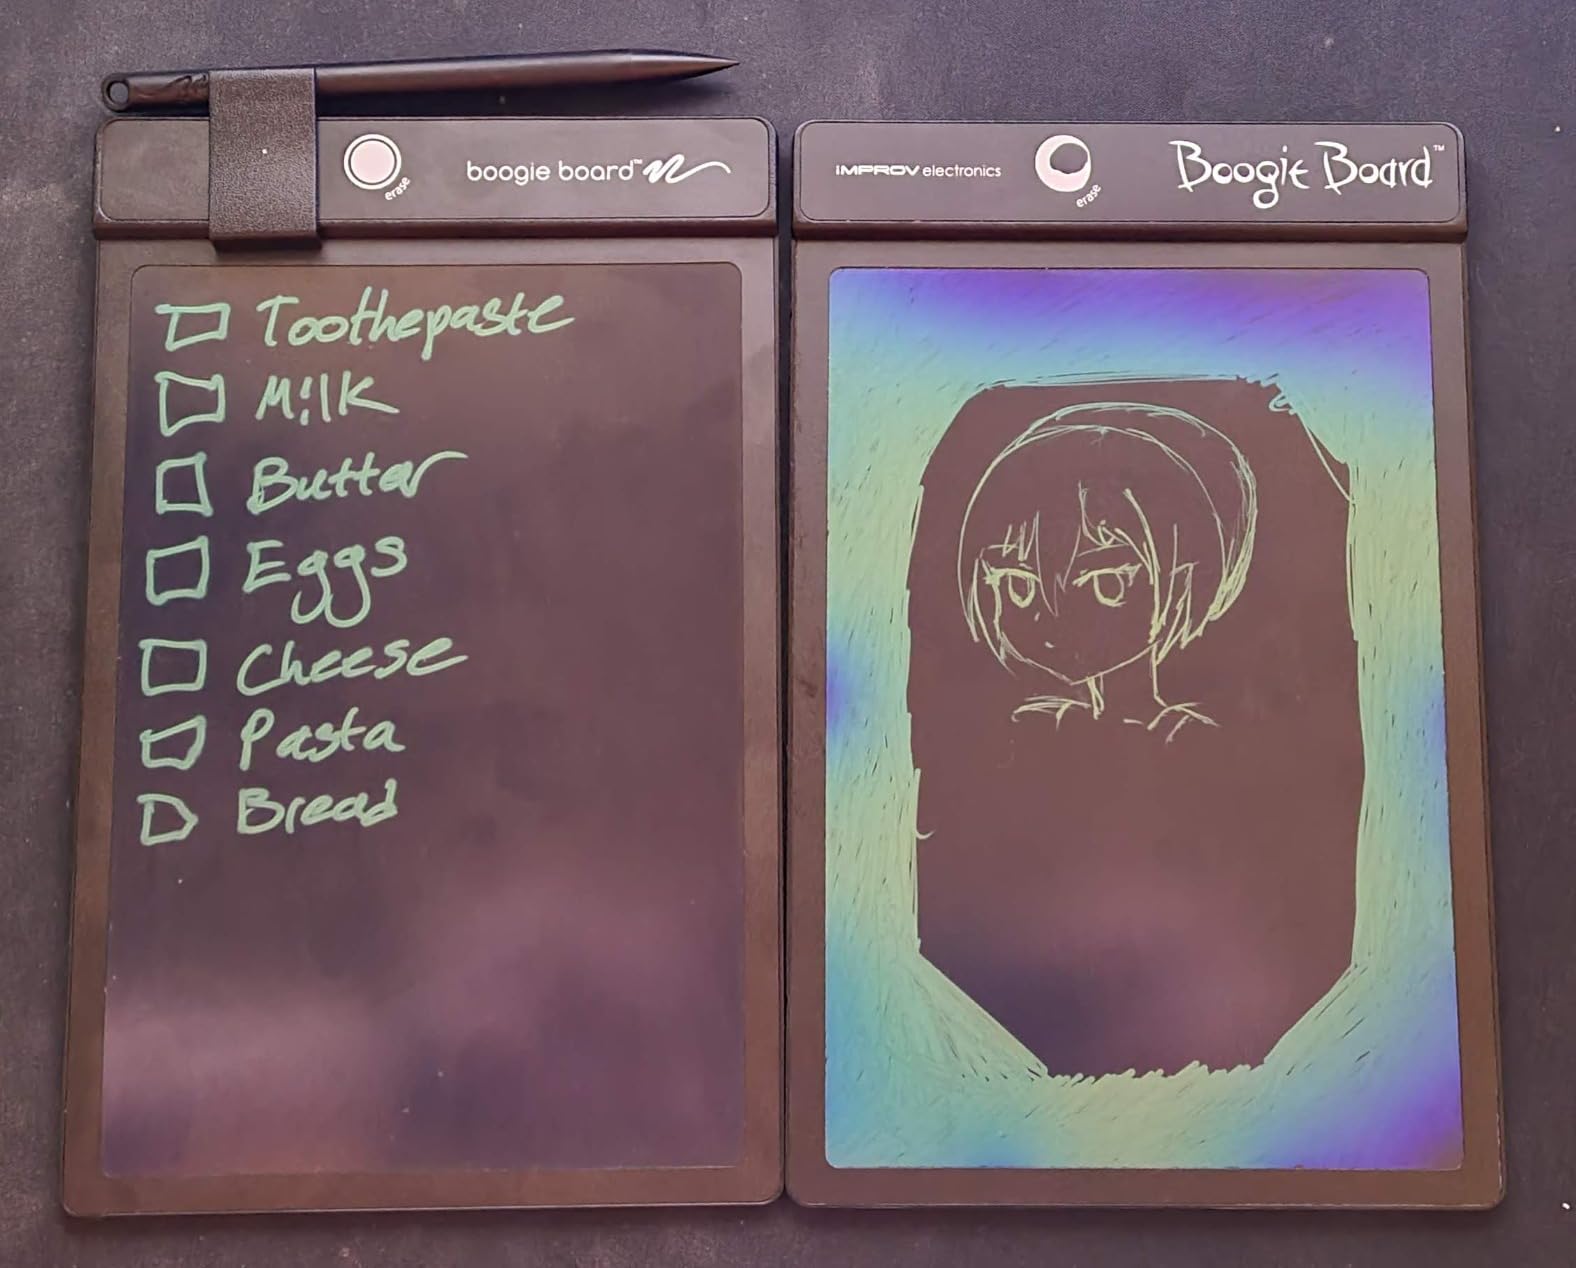 boogie board™
erase
Toothepaste
Milk
Butter
Eggs
Cheese
Pasta
Bread
IMPROV electronics
erase
Boogie Board™